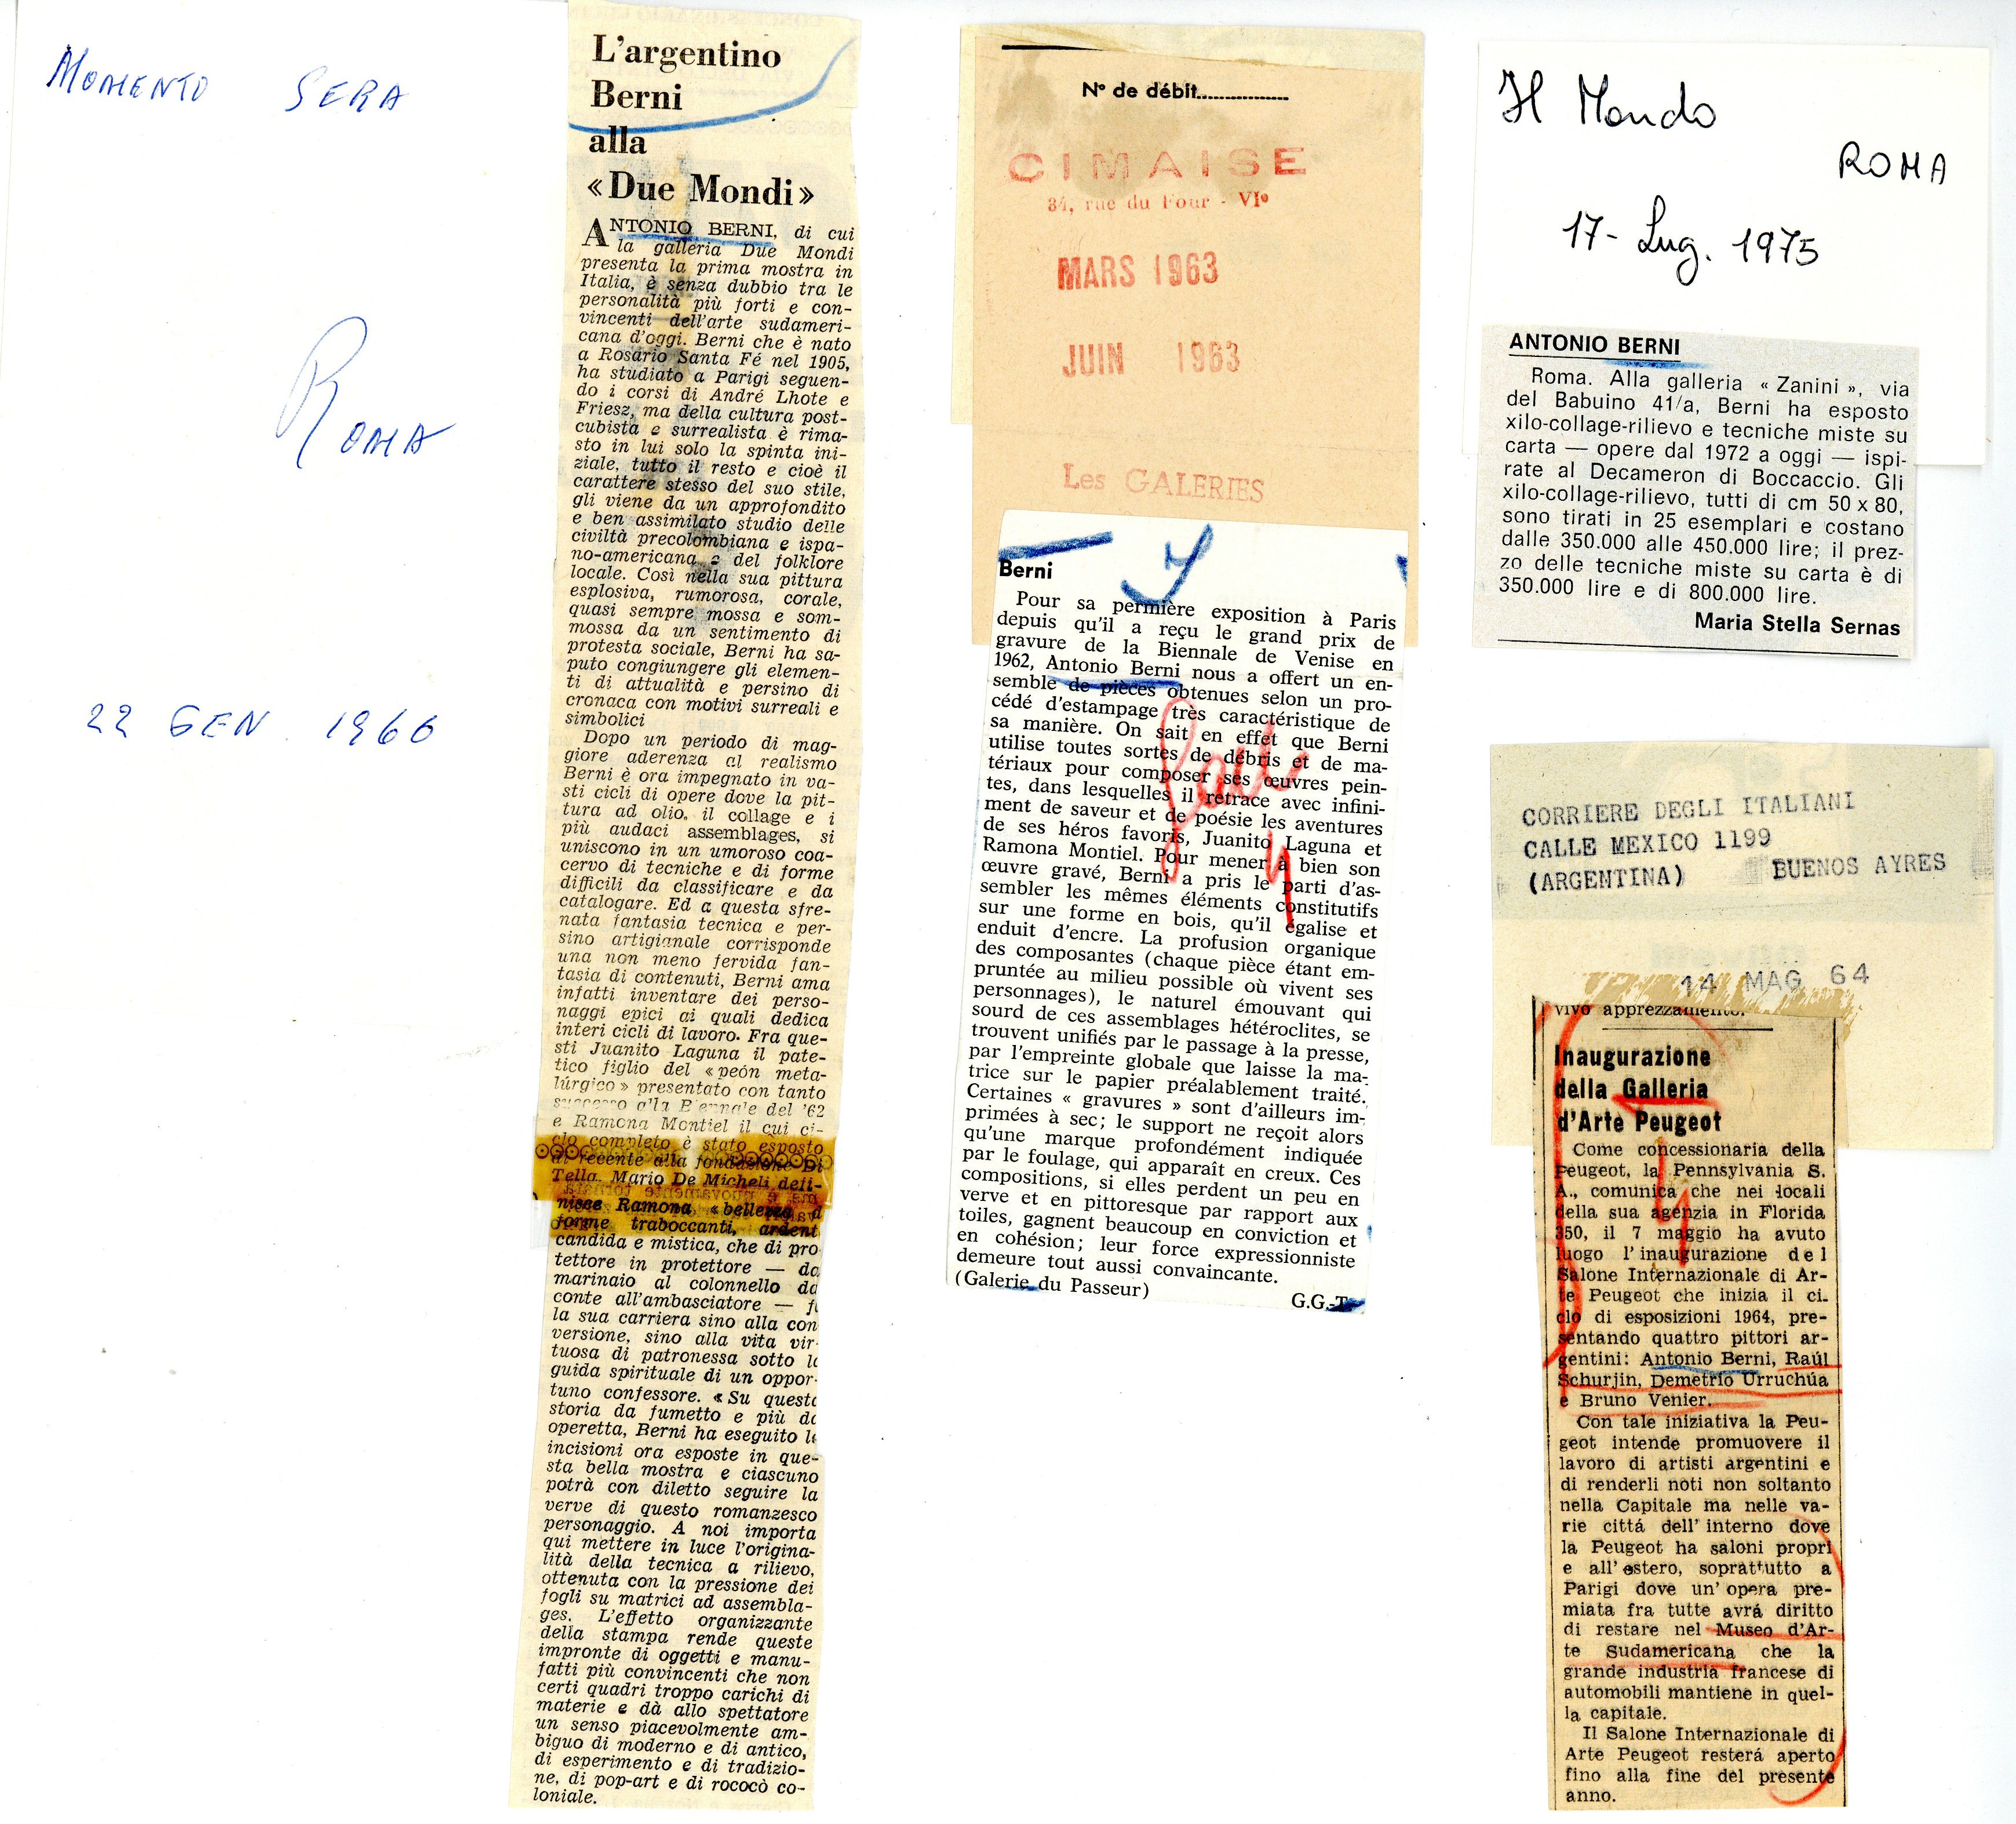 MOMENTO SERA
ROMA
22 GEN. 1966
L'argentino
Berni
alla
«Due Mondi»
ANTONIO BERNI, di cui
la galleria Due Mondi
presenta la prima mostra in
Italia, è senza dubbio tra le
personalità più forti e con-
vincenti dell'arte sudameri-
cana d'oggi. Berni che è nato
a Rosario Santa Fé nel 1905,
ha studiato a Parigi seguen-
do i corsi di André Lhote e
Friesz, ma della cultura post-
cubista e surrealista è rima-
sto in lui solo la spinta ini-
ziale, tutto il resto e cioè il
carattere stesso del suo stile,
gli viene da un approfondito
e ben assimilato studio delle
civiltà precolombiana e ispa-
no-americana e del folklore
locale. Così nella sua pittura
esplosiva, rumorosa, corale,
quasi sempre mossa e som-
mossa da un sentimento di
protesta sociale, Berni ha sa-
puto congiungere gli elemen-
ti di attualità e persino di
cronaca con motivi surreali e
simbolici
Dopo un periodo di mag-
giore aderenza al realismo
Berni è ora impegnato in va-
sti cicli di opere dove la pit-
tura ad olio, il collage e i
più audaci assemblages, si
uniscono in un umoroso coa-
cervo di tecniche e di forme
difficili da classificare e da
catalogare. Ed a questa sfre-
nata fantasia tecnica e per-
sino artigianale corrisponde
una non meno fervida fan-
tasia di contenuti, Berni ama
infatti inventare dei perso-
naggi epici ai quali dedica
interi cicli di lavoro. Fra que-
sti Juanito Laguna il pate-
tico figlio del «peón meta-
lúrgico» presentato con tanto
successo alla Biennale del '62
e Ramona Montiel il cui ci-
clo completo è stato esposto
di recente alla fondazione Di
Tella. Mario De Micheli defi-
nisce Ramona «bellezza d
forme traboccanti, ardent
candida e mistica, che di pro
tettore in protettore — da
marinaio al colonnello da
conte all'ambasciatore — f
la sua carriera sino alla con
versione, sino alla vita vir-
tuosa di patronessa sotto l
guida spirituale di un oppor-
tuno confessore. «Su questa
storia da fumetto e più da
operetta, Berni ha eseguito l
incisioni ora esposte in que-
sta bella mostra e ciascuno
potrà con diletto seguire la
verve di questo romanzesco
personaggio. A noi importa
qui mettere in luce l'origina-
lità della tecnica a rilievo,
ottenuta con la pressione dei
fogli su matrici ad assembla-
ges. L'effetto organizzante
della stampa rende queste
impronte di oggetti e manu-
fatti più convincenti che non
certi quadri troppo carichi di
materie e dà allo spettatore
un senso piacevolmente am-
biguo di moderno e di antico,
di esperimento e di tradizio-
ne, di pop-art e di rococò co-
loniale.
N° de débit................
CIMAISE
34, rue du Four - VIe
MARS 1963
JUIN 1963
Les GALERIES
Berni
Pour sa permière exposition à Paris
depuis qu'il a reçu le grand prix de
gravure de la Biennale de Venise en
1962, Antonio Berni nous a offert un en-
semble de pièces obtenues selon un pro-
cédé d'estampage très caractéristique de
sa manière. On sait en effet que Berni
utilise toutes sortes de débris et de ma-
tériaux pour composer ses œuvres pein-
tes, dans lesquelles il retrace avec infini-
ment de saveur et de poésie les aventures
de ses héros favoris, Juanito Laguna et
Ramona Montiel. Pour mener à bien son
œuvre gravé, Berni a pris le parti d'as-
sembler les mêmes éléments constitutifs
sur une forme en bois, qu'il égalise et
enduit d'encre. La profusion organique
des composantes (chaque pièce étant em-
pruntée au milieu possible où vivent ses
personnages), le naturel émouvant qui
sourd de ces assemblages hétéroclites, se
trouvent unifiés par le passage à la presse,
par l'empreinte globale que laisse la ma-
trice sur le papier préalablement traité.
Certaines « gravures » sont d'ailleurs im-
primées à sec; le support ne reçoit alors
qu'une marque profondément indiquée
par le foulage, qui apparaît en creux. Ces
compositions, si elles perdent un peu en
verve et en pittoresque par rapport aux
toiles, gagnent beaucoup en conviction et
en cohésion; leur force expressionniste
demeure tout aussi convaincante.
(Galerie du Passeur)
G.G.-T.
Il Mondo
ROMA
17- Lug. 1975
ANTONIO BERNI
Roma. Alla galleria « Zanini », via
del Babuino 41/a, Berni ha esposto
xilo-collage-rilievo e tecniche miste su
carta — opere dal 1972 a oggi — ispi-
rate al Decameron di Boccaccio. Gli
xilo-collage-rilievo, tutti di cm 50 x 80,
sono tirati in 25 esemplari e costano
dalle 350.000 alle 450.000 lire; il prez-
zo delle tecniche miste su carta è di
350.000 lire e di 800.000 lire.
Maria Stella Sernas
CORRIERE DEGLI ITALIANI
CALLE MEXICO 1199
(ARGENTINA) BUENOS AYRES
14 MAG 64
vivo apprezzamento.
Inaugurazione
della Galleria
d'Arte Peugeot
Come concessionaria della
Peugeot, la Pennsylvania S.
A., comunica che nei locali
della sua agenzia in Florida
350, il 7 maggio ha avuto
luogo l'inaugurazione del
Salone Internazionale di Ar-
te Peugeot che inizia il ci-
clo di esposizioni 1964, pre-
sentando quattro pittori ar-
gentini: Antonio Berni, Raúl
Schurjin, Demetrio Urruchúa
e Bruno Venier.
Con tale iniziativa la Peu-
geot intende promuovere il
lavoro di artisti argentini e
di renderli noti non soltanto
nella Capitale ma nelle va-
rie cittá dell'interno dove
la Peugeot ha saloni propri
e all'estero, soprattutto a
Parigi dove un'opera pre-
miata fra tutte avrá diritto
di restare nel Museo d'Ar-
te Sudamericana che la
grande industria francese di
automobili mantiene in quel-
la capitale.
Il Salone Internazionale di
Arte Peugeot resterá aperto
fino alla fine del presente
anno.